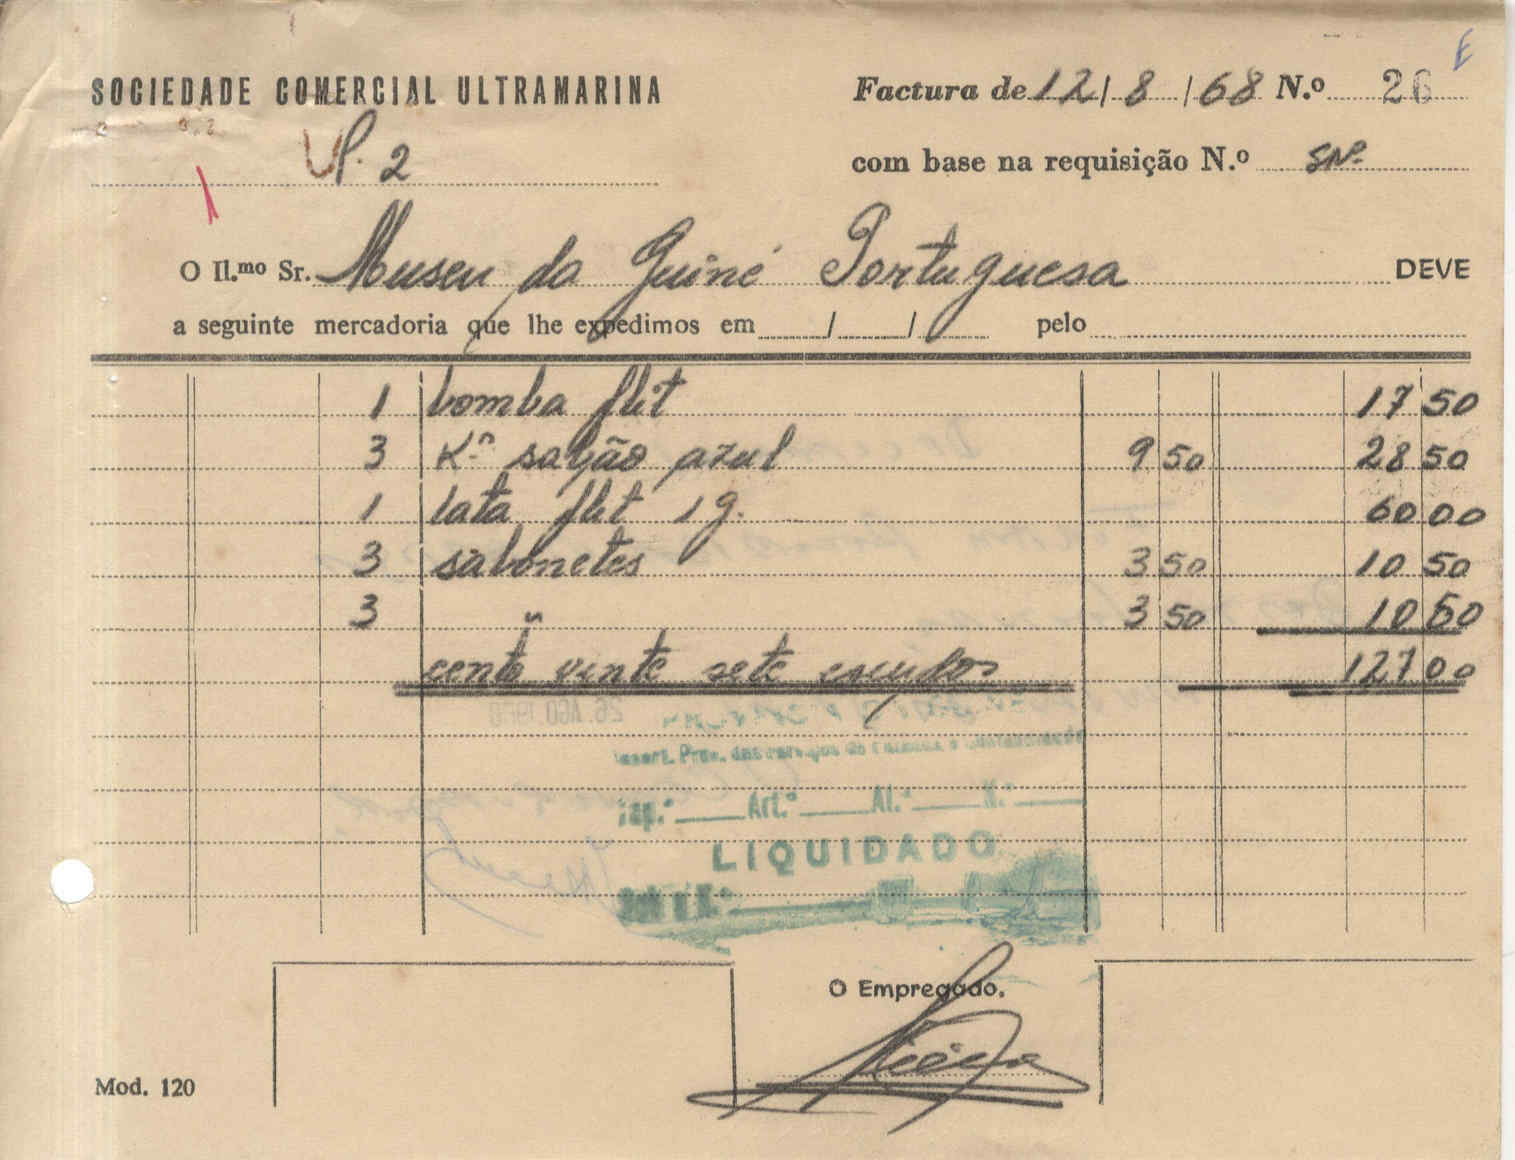 SOCIEDADE COMERCIAL ULTRAMARINA
Factura de 12/8/68 N.º 26
P. 2
com base na requisição N.º SNº
O Il.mo Sr. Museu da Guiné Portuguesa DEVE
a seguinte mercadoria que lhe expedimos em / / pelo
1 bomba flit 17 50
3 Kº sabão azul 9 50 28 50
1 lata flit 1 g. 60 00
3 sabonetes 3 50 10 50
3 " 3 50 10 50
cento vinte sete escudos 127 00
26. AGO. 1968
Art.º Al.ª N.º
LIQUIDADO
O Empregado,
Mod. 120